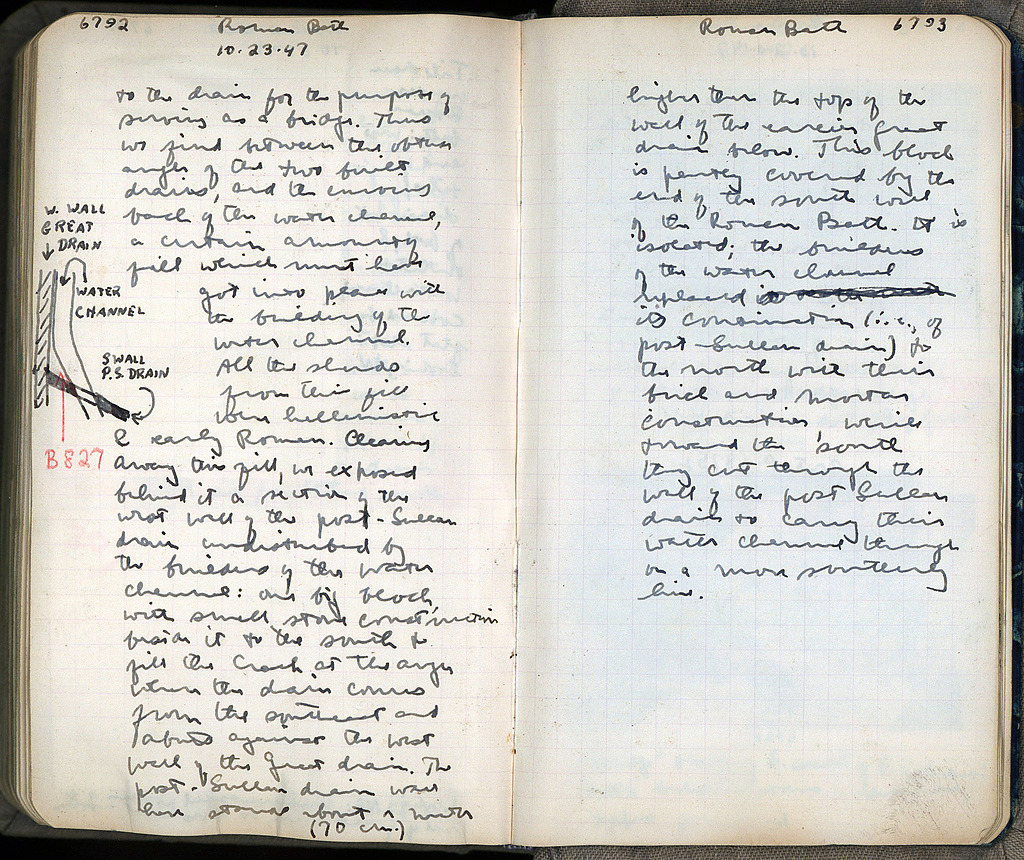 6792
Roman Bath
10.23.47
to the drain for the purpose of
serving as a bridge. Thus
we find between the obtuse
angle of the two built
drains, and the
back of the water channel,
a certain amount of
fill which must have
got into place with
the building of the
water channel.
All the sherds
from this fill
were hellenistic
& early Roman. Clearing
away this fill, we exposed
behind it a section of the
west wall of the post-Sullan
drain undisturbed by
the builders of the water
channel: one big block,
with small stone construction
beside it to the south to
fill the crack at the angle
where the drain comes
from the southeast and
abuts against the west
wall of the Great drain. The
post-Sullan drain wall
here stands about a meter
(70 cm.)
W. WALL
GREAT
DRAIN
WATER
CHANNEL
S WALL
P.S. DRAIN
B 827
Roman Bath
6793
higher than the top of the
wall of the earlier great
drain below. This block
is partly covered by the
end of the south wall
of the Roman Bath. It is
isolated; the builders
of the water channel
replaced
its continuation (i.e., of
post-Sullan drain) to
the north with their
brick and mortar
construction, while
toward the south
they cut through the
wall of the post Sullan
drain to carry their
water channel through
on a more southerly
line.